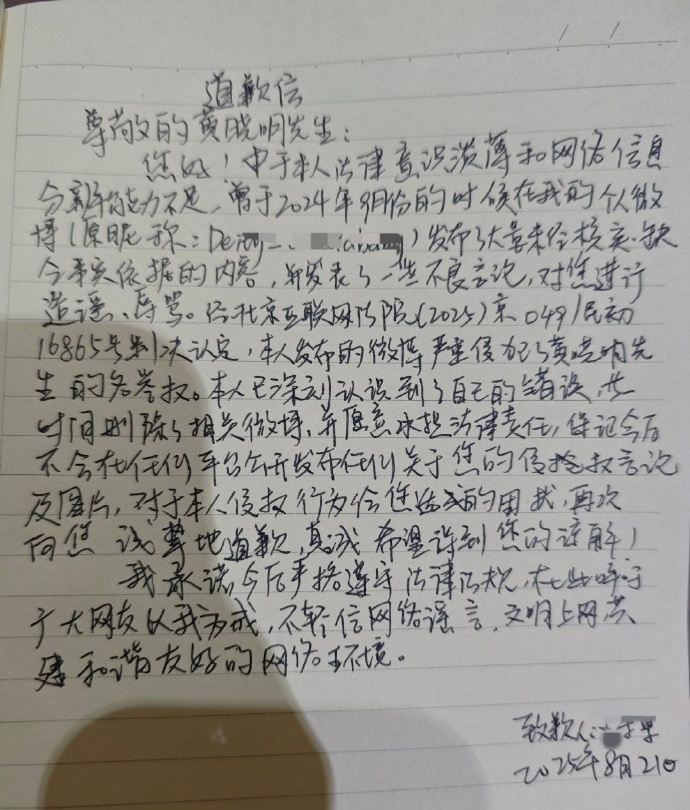 道歉信
尊敬的黄晓明先生：
您好！由于本人法律意识淡薄和网络信息
分辨能力不足，曾于2024年9月份的时候在我的个人微
博（原昵称：Deity_）发布了大量未经核实、缺
今事实依据的内容，并发表了一些不良言论，对您进行
造谣、辱骂。经北京互联网法院（2025）京0491民初
16865号判决认定，本人发布的微博严重侵犯了黄晓明先
生的名誉权。本人已深刻认识到了自己的错误，第一
时间删除了相关微博，并愿意承担法律责任，保证今后
不会在任何平台公开发布任何关于您的侵权言论
及图片，对于本人侵权行为给您造成的困扰，再次
向您诚挚地道歉，真诚希望得到您的谅解！
我承诺今后严格遵守法律法规，在此呼吁
广大网友以我为戒，不轻信网络谣言，文明上网，共
建和谐友好的网络环境。
致歉人：
2025年8月21日